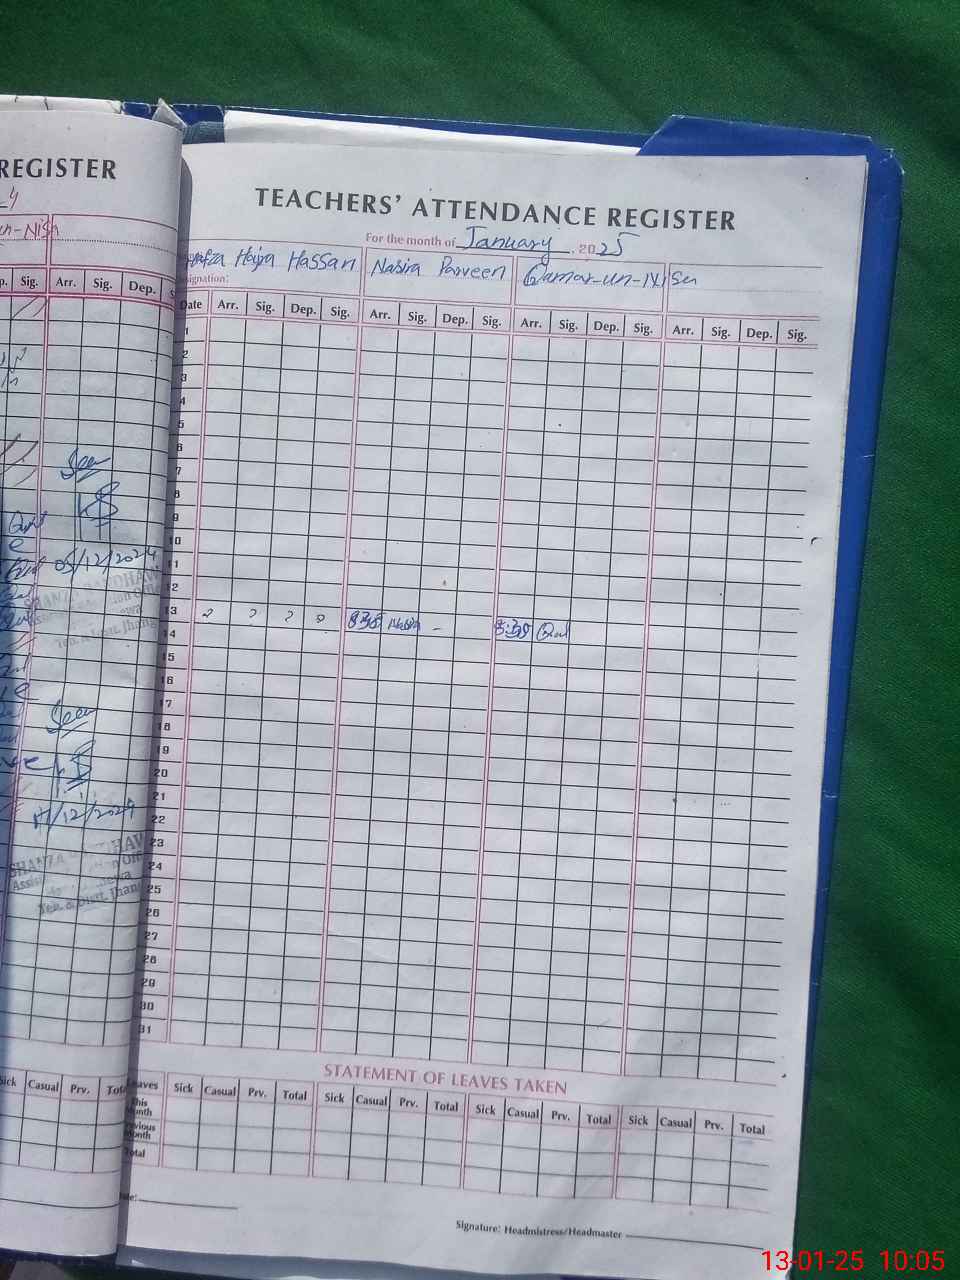 REGISTER
TEACHERS' ATTENDANCE REGISTER
For the month of January, 2025
Hajra Hassan Nasira Parveen Qamar-un-Nisa
signation:
p. Sig. Arr. Sig. Dep. S
Date Arr. Sig. Dep. Sig. Arr. Sig. Dep. Sig. Arr. Sig. Dep. Sig. Arr. Sig. Dep. Sig.
1
2
3
4
5
6
7
8
9
10
11
12
13 8:35 Nasira - 8:30
14
15
16
17
18
19
20
21
22
23
24
25
26
27
28
29
30
31
Seen
05/12/2024
Teh. & Distt. Jhang
Seen
17/12/2024
SHANZA
Teh. & Distt. Jhang
STATEMENT OF LEAVES TAKEN
Sick Casual Prv. Total
Leaves Sick Casual Prv. Total Sick Casual Prv. Total Sick Casual Prv. Total Sick Casual Prv. Total
This Month
Previous Month
Total
Signature: Headmistress/Headmaster
13-01-25 10:05